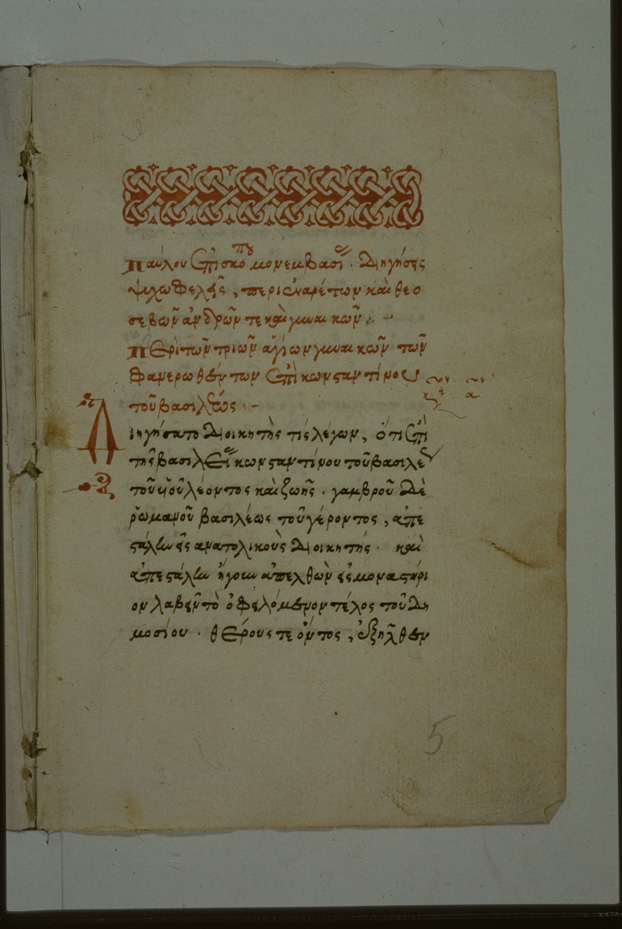 Παύλου ἐπισκόπου μονεμβασί. Διήγησις
ψυχωφελής, περὶ ἐναρέτων καὶ θεο
σεβῶν ἀνδρῶν τε καὶ γυναικῶν.
Περὶ τῶν τριῶν ἁγίων γυναικῶν τῶν
φανερωθέντων ἐπὶ κωνσταντίνου
τοῦ βασιλέως
Διηγήσατο διοικητὰς τίς λέγων, ὅτι ἐπὶ
τῆς βασιλεί κωνσταντίνου τοῦ βασιλέ
τοῦ υἱοῦ λέοντος καὶ ζωῆς. γαμβροῦ δὲ
ῥωμανοῦ βασιλέως τοῦ γέροντος, ἀπε
στάλην εἰς ἀνατολικοὺς διοικητής. καὶ
ἀπεστάλην ἤγουν ἀπελθὼν εἰς μοναστήρι
ον λαβεῖν τὸ ὀφελόμενον τέλος τοῦ δη
μοσίου. θέρους τε ὄντος, ἐξῆλθεν
5